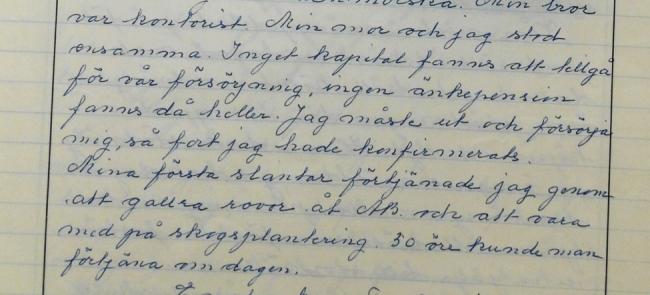 Min bror
var kontorist. Min mor och jag stod
ensamma. Inget kapital fanns att tillgå
för vår försörjning, ingen änkepension
fanns då heller. Jag måste ut och försörja
mig, så fort jag hade konfirmerats.
Mina första slantar förtjänade jag genom
att gallra rovor åt AB. och att vara
med på skogsplantering. 50 öre kunde man
förtjäna om dagen.